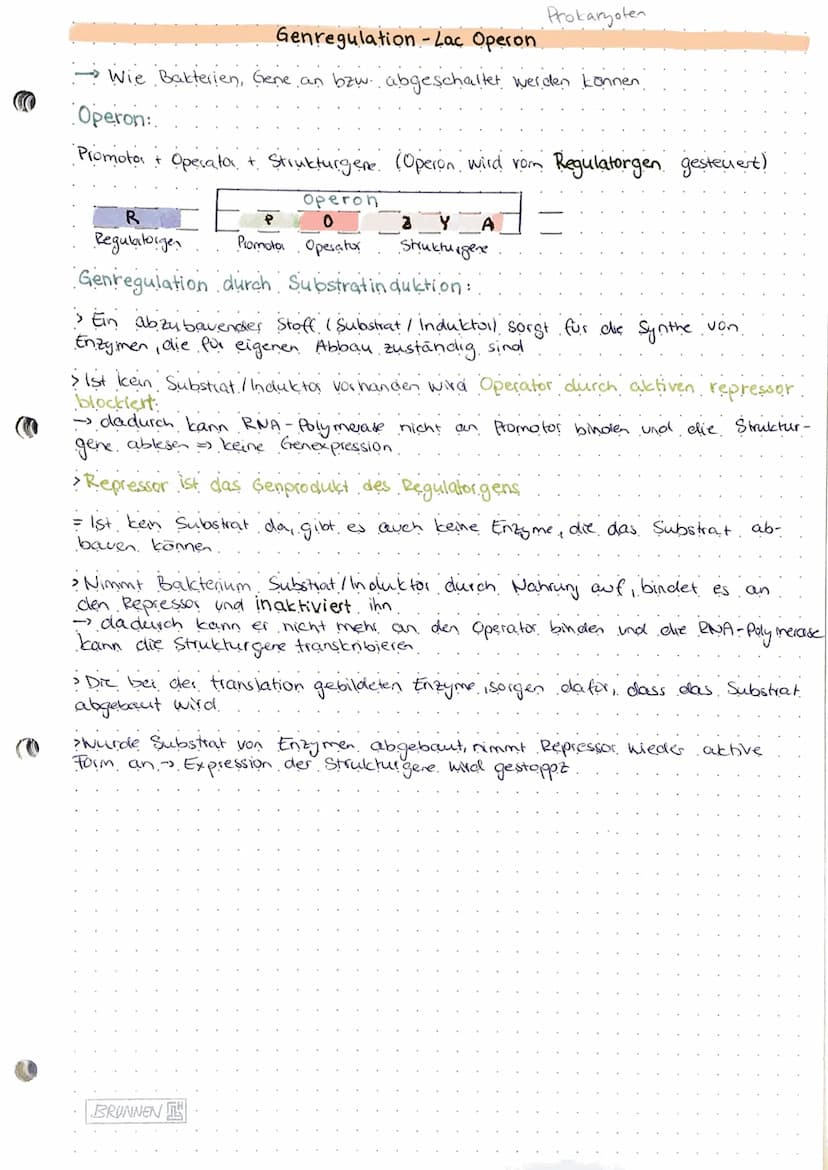 Prokaryoten
Genregulation - Lac Operon
→ Wie Bakterien, Gene an bzw. abgeschaltet werden können
Operon:
Promotor + Operator + Strukturgene (Operon wird vom Regulatorgen gesteuert)
Operon
R P O Z Y A
Regulatorgen Promotor Operator Strukturgene
Genregulation durch Substratinduktion:
> Ein abzubauender Stoff (Substrat / Induktor) sorgt für die Synthe von
Enzymen, die für eigenen Abbau zuständig sind
> Ist kein Substrat / Induktor vorhanden wird Operator durch aktiven repressor
blockiert.
→ dadurch kann RNA-Polymerase nicht an Promotor binden und die Struktur-
gene ablesen ⇒ keine Genexpression
> Repressor ist das Genprodukt des Regulatorgens
= Ist kein Substrat da, gibt es auch keine Enzyme, die das Substrat ab-
bauen können
> Nimmt Bakterium Substrat / Induktor durch Nahrung auf, bindet es an
den Repressor und inaktiviert ihn
→ dadurch kann er nicht mehr an den Operator binden und die RNA-Polymerase
kann die Strukturgene transkribieren
> Die bei der translation gebildeten Enzyme, sorgen dafür, dass das Substrat
abgebaut wird
> Wurde Substrat von Enzymen abgebaut, nimmt Repressor wieder aktive
Form an → Expression der Strukturgene wird gestoppt
BRUNNEN